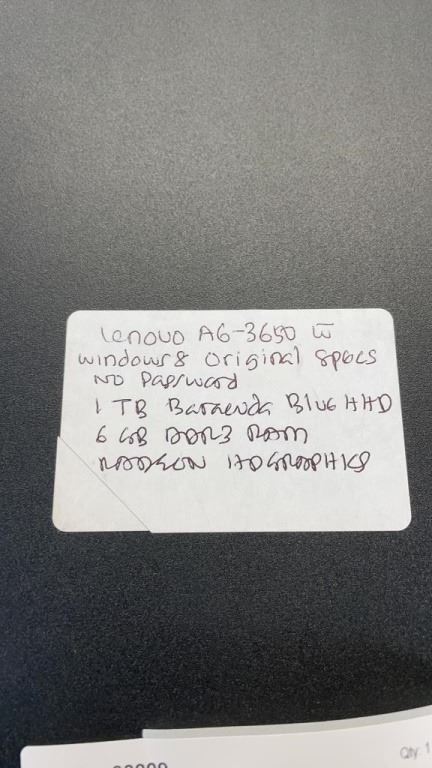 Lenovo A6-3650 w̅
windows 8 original specs
No Password
1 TB Baracuda Blue HHD
6 GB DDR3 RAM
RADEON HD GRAPHICS
Qty: 1